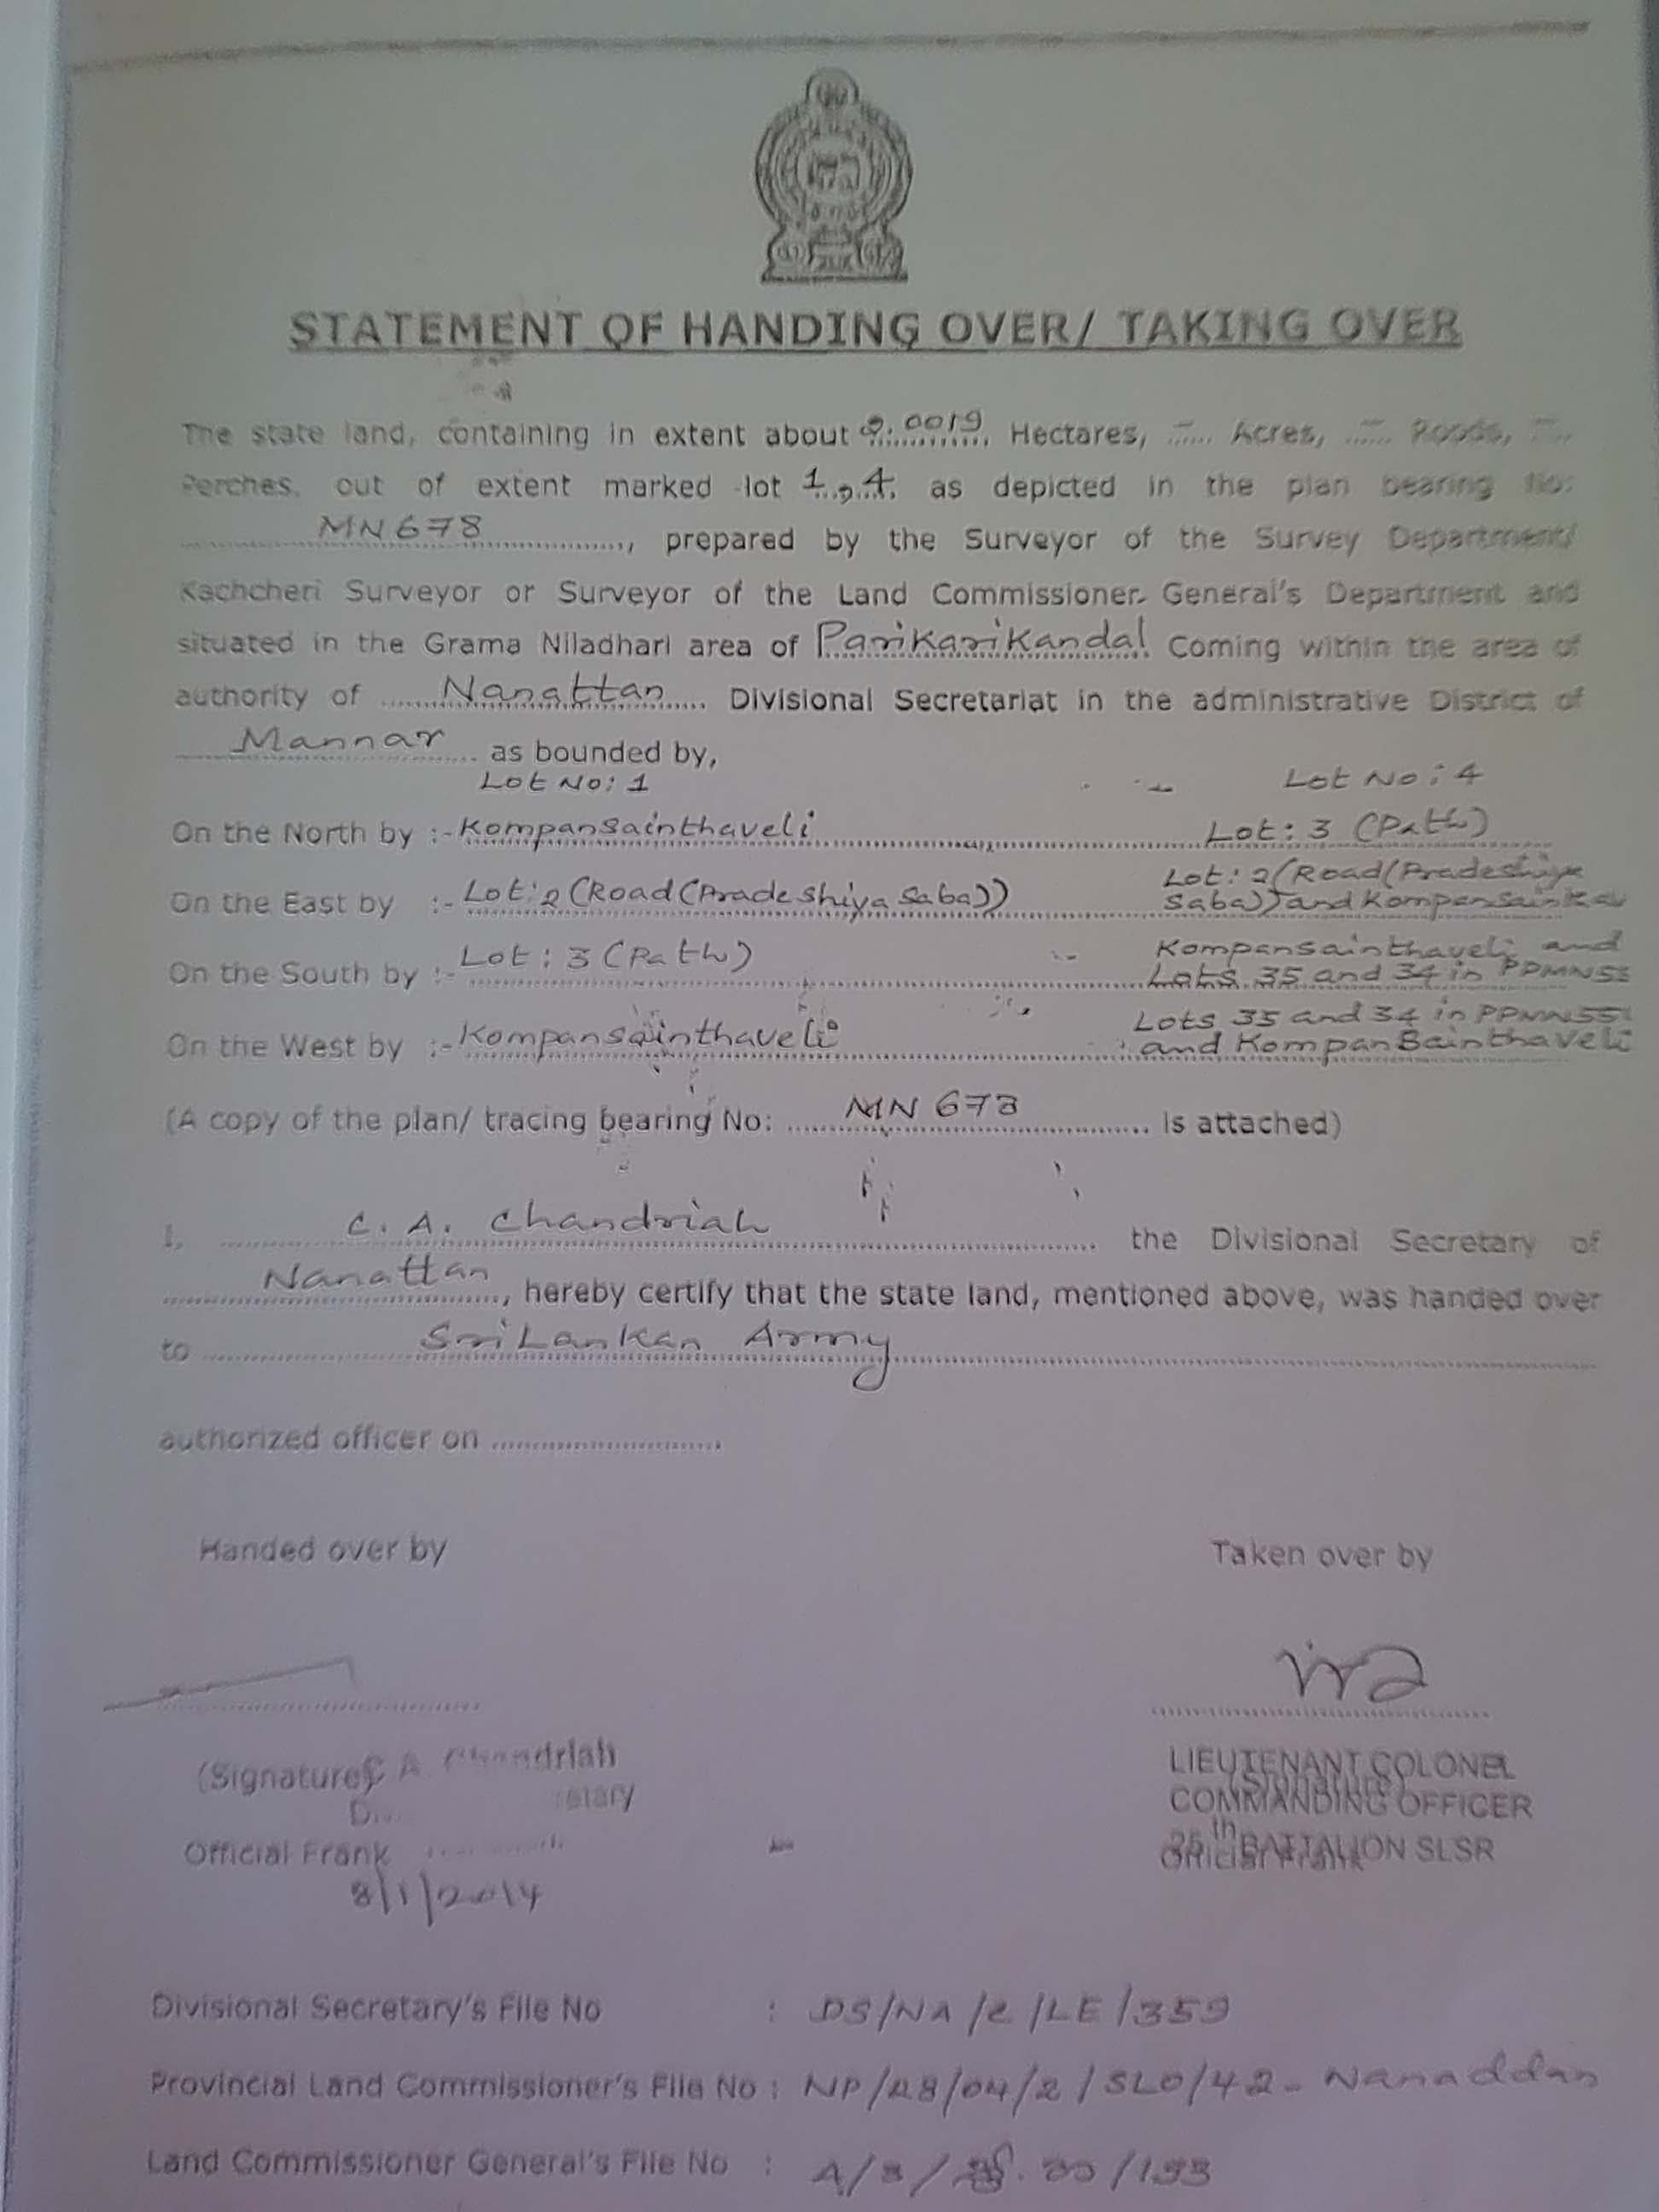 STATEMENT OF HANDING OVER/ TAKING OVER
The state land, containing in extent about 0.0019 Hectares, — Acres, — Roods, —
Perches, out of extent marked lot 1, 4. as depicted in the plan bearing No:
MN678, prepared by the Surveyor of the Survey Department/
Kachcheri Surveyor or Surveyor of the Land Commissioner General's Department and
situated in the Grama Niladhari area of Parikarikandal Coming within the area of
authority of Nanattan Divisional Secretariat in the administrative District of
Mannar as bounded by,
Lot No: 1 Lot No: 4
On the North by :- Kompansainthaveli Lot: 3 (Path)
On the East by :- Lot: 2 (Road (Pradeshiya Saba)) Lot: 2 (Road (Pradeshiya
Saba)) and Kompansainthav
On the South by :- Lot: 3 (Path) Kompansainthaveli and
Lots 35 and 34 in PPMN55
On the West by :- Kompansainthaveli Lots 35 and 34 in PPMN55
and Kompansainthaveli
(A copy of the plan/ tracing bearing No: MN 678 is attached)
I, C. A. Chandriah the Divisional Secretary of
Nanattan, hereby certify that the state land, mentioned above, was handed over
to Sri Lankan Army
authorized officer on
Handed over by Taken over by
(Signature) C A Chandriah LIEUTENANT COLONEL
(Signature)
COMMANDING OFFICER
Official Frank 25th BATTALION SLSR
Official Frank
8/1/2014
Divisional Secretary's File No : DS/NA/2/LE/359
Provincial Land Commissioner's File No : NP/28/04/2/SLO/42- Nanaddan
Land Commissioner General's File No :